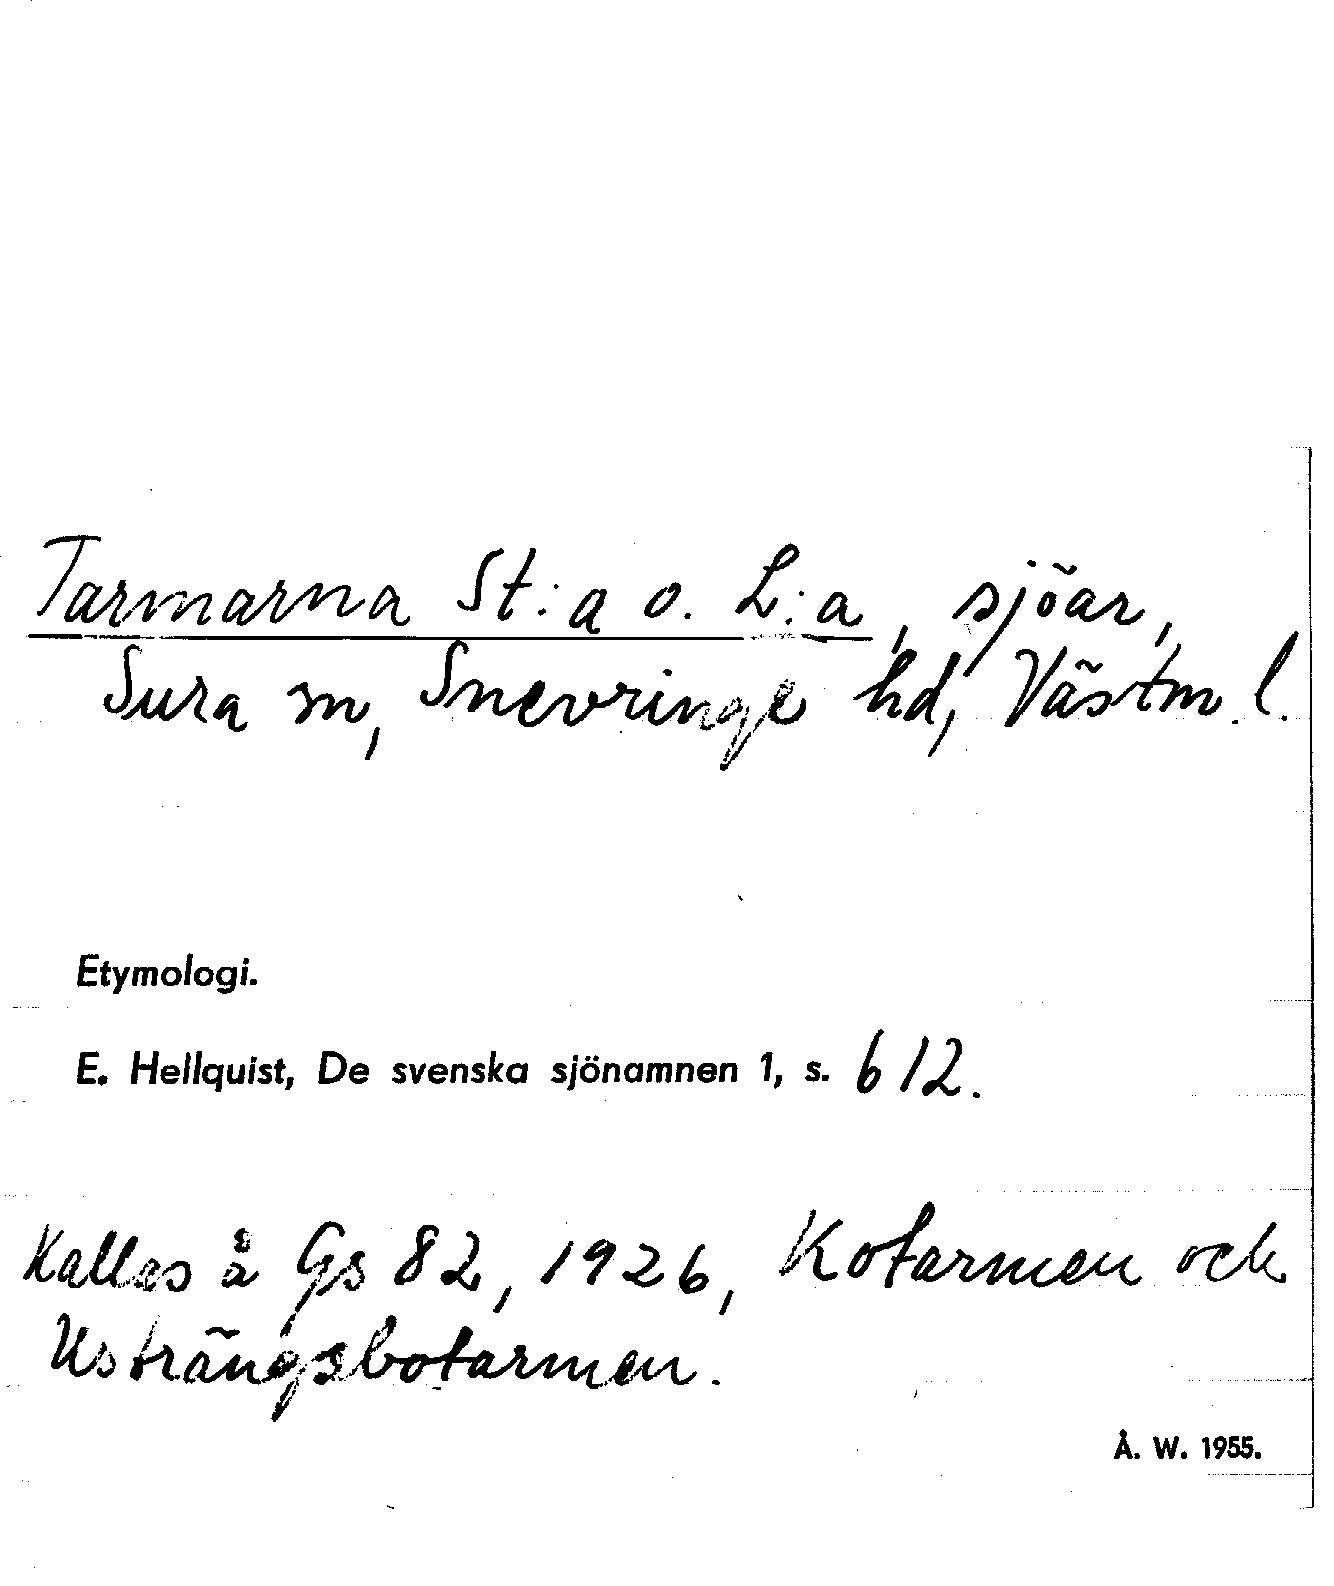 Tarmarna St:a o. L:a, sjöar,
Sura sn, Snevringe hd, Västm. l.
Etymologi.
E. Hellquist, De svenska sjönamnen 1, s. 612.
Kallas å Gs 82, 1926, Kotarmen och
Usträngsbotarmen.
Å. W. 1955.